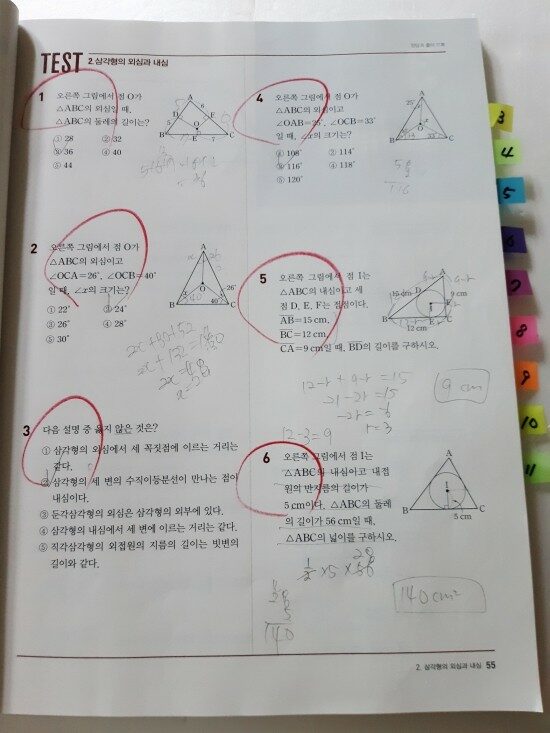 TEST 2. 삼각형의 외심과 내심
1
오른쪽 그림에서 점 O가
△ABC의 외심일 때,
△ABC의 둘레의 길이는?
① 28 ② 32
③ 36 ④ 40
⑤ 44
A
D
F
O
B
E
C
5
6
7
2
오른쪽 그림에서 점 O가
△ABC의 외심이고
∠OCA=26°, ∠OCB=40°
일 때, ∠x의 크기는?
① 22° ② 24°
③ 26° ④ 28°
⑤ 30°
A
O
26°
40°
B
C
3
다음 설명 중 옳지 않은 것은?
① 삼각형의 외심에서 세 꼭짓점에 이르는 거리는
같다.
② 삼각형의 세 변의 수직이등분선이 만나는 점이
내심이다.
③ 둔각삼각형의 외심은 삼각형의 외부에 있다.
④ 삼각형의 내심에서 세 변에 이르는 거리는 같다.
⑤ 직각삼각형의 외접원의 지름의 길이는 빗변의
길이와 같다.
4
오른쪽 그림에서 점 O가
△ABC의 외심이고
∠OAB=25°, ∠OCB=33°
일 때, ∠x의 크기는?
① 108° ② 114°
③ 116° ④ 118°
⑤ 120°
A
25°
O
33°
B
C
58
2
116
5
오른쪽 그림에서 점 I는
△ABC의 내심이고 세
점 D, E, F는 접점이다.
AB=15 cm,
BC=12 cm,
CA=9 cm일 때, BD의 길이를 구하시오.
A
15 cm
D
9 cm
B
E
C
12 cm
12-r + 9-r = 15
21-2r = 15
-2r = -6
r = 3
12-3=9
9 cm
6
오른쪽 그림에서 점 I는
△ABC의 내심이고 내접
원의 반지름의 길이가
5 cm이다. △ABC의 둘레
의 길이가 56 cm일 때,
△ABC의 넓이를 구하시오.
A
I
B
5 cm
C
28
1/2 ×5 ×56
28
5
140
140 cm²
2. 삼각형의 외심과 내심 55
3
4
5
6
7
8
9
10
11